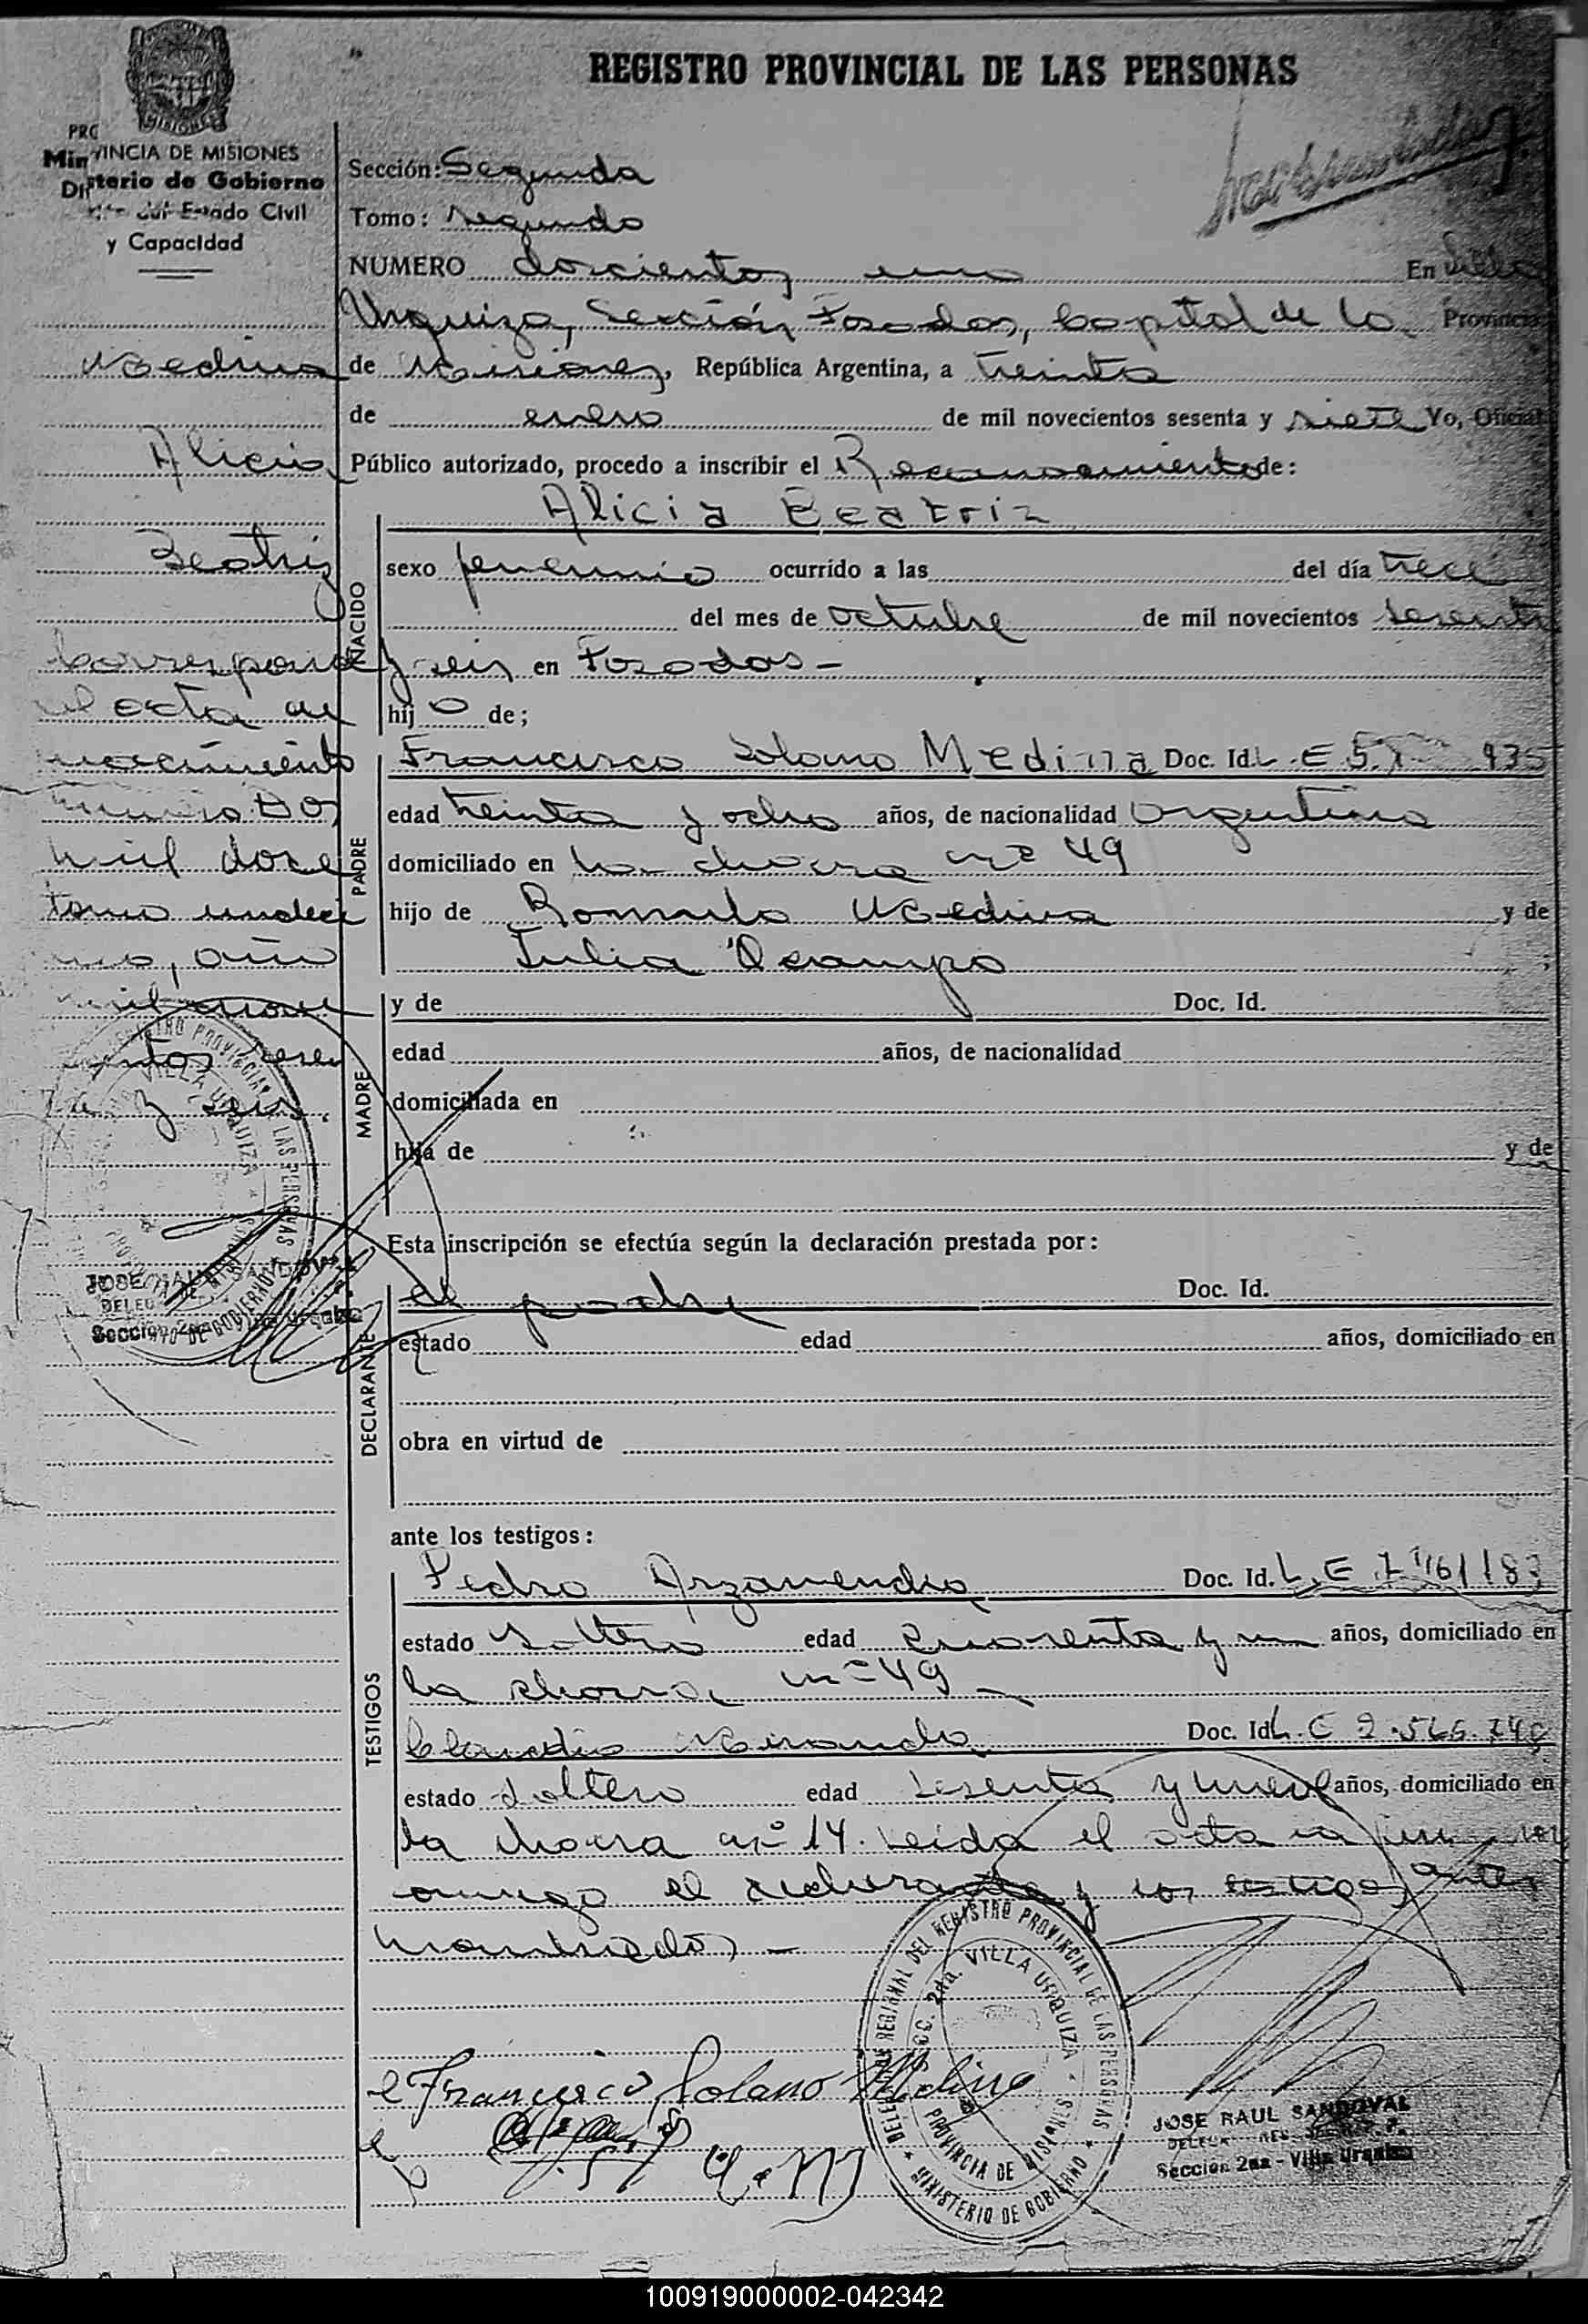 REGISTRO PROVINCIAL DE LAS PERSONAS
MISIONES
PROVINCIA DE MISIONES
Ministerio de Gobierno
del Estado Civil
y Capacidad
Sección: Segunda
Tomo: segundo
NUMERO doscientos uno En Villa
Urquiza, Sección Posadas, Capital de la Provincia
de Misiones, República Argentina, a treinta
de enero de mil novecientos sesenta y siete Yo, Oficial
Público autorizado, procedo a inscribir el Reconocimiento de:
Alicia Beatriz
NACIDO
sexo femenino ocurrido a las del día trece
del mes de octubre de mil novecientos sesenta
y seis en Posadas -
hij o de;
PADRE
Francisco Solano Medina Doc. Id. L.E 5. 935
edad treinta y ocho años, de nacionalidad Argentino
domiciliado en la chacra nº 49
hijo de Romulo Medina y de
Julia Ocampo ;
MADRE
y de Doc. Id.
edad años, de nacionalidad
domiciliada en
hija de y de
Esta inscripción se efectúa según la declaración prestada por:
DECLARANTE
el padre Doc. Id.
estado edad años, domiciliado en
obra en virtud de
ante los testigos:
TESTIGOS
Pedro Arzamendia Doc. Id. L.E
estado soltero edad cuarenta y un años, domiciliado en
la chacra nº 49 -
Claudio Miranda Doc. Id L.E 2.565.
estado soltero edad sesenta y nueve años, domiciliado en
la chacra nº 14. Leida el acta la
conmigo el declarante y los testigos antes
nombrados -
Medina
Alicia
Beatriz
Corresponde
el acta de
nacimiento
número dos
mil doce
tomo undeci
mo, año
mil nove
cientos sesen
ta y seis.
REGISTRO PROVINCIAL DE LAS PERSONAS
VILLA URQUIZA
JOSE RAUL SANDOVAL
Sección 2da - Villa Urquiza
Francisco Solano Medina
DELEGADO REGIONAL DEL REGISTRO PROVINCIAL DE LAS PERSONAS
SECC. 2da. VILLA URQUIZA
PROVINCIA DE MISIONES
MINISTERIO DE GOBIERNO
JOSE RAUL SANDOVAL
Sección 2da - Villa Urquiza
100919000002-042342